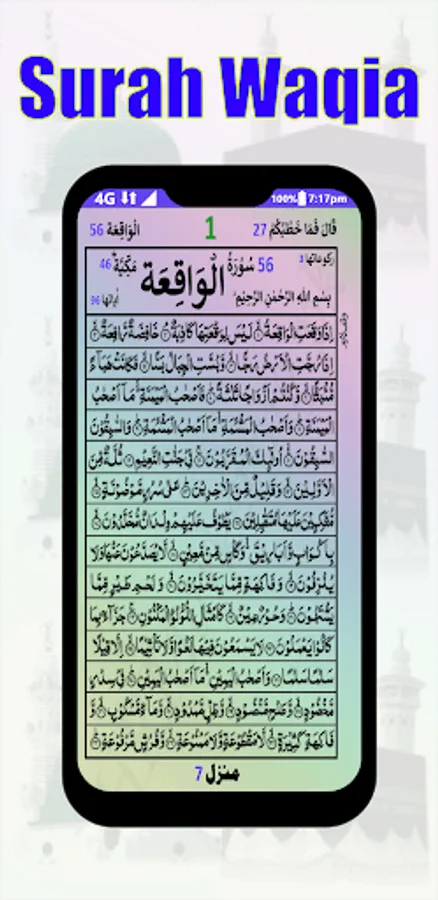 Surah Waqia
4G 100% 7:17pm
قَالَ فَمَا خَطْبُكُمْ 27 1 الْوَاقِعَة 56
رکوعاتها 3 56 سُوْرَةُ الْوَاقِعَة مَكِّيَّةٌ 46
بِسْمِ اللهِ الرَّحْمٰنِ الرَّحِيْمِ اٰیاتها 96
اِذَا وَقَعَتِ الْوَاقِعَةُ ۝ لَيْسَ لِوَقْعَتِهَا كَاذِبَةٌ ۝ خَافِضَةٌ رَّافِعَةٌ ۝
اِذَا رُجَّتِ الْاَرْضُ رَجًّا ۝ وَّبُسَّتِ الْجِبَالُ بَسًّا ۝ فَكَانَتْ هَبَآءً
مُّنْۢبَثًّا ۝ وَّكُنْتُمْ اَزْوَاجًا ثَلٰثَةً ۝ فَاَصْحٰبُ الْمَيْمَنَةِ مَاۤ اَصْحٰبُ
الْمَيْمَنَةِ ۝ وَاَصْحٰبُ الْمَشْـَٔمَةِ مَاۤ اَصْحٰبُ الْمَشْـَٔمَةِ ۝ وَالسّٰبِقُوْنَ
السّٰبِقُوْنَ ۝ اُولٰٓئِكَ الْمُقَرَّبُوْنَ ۝ فِيْ جَنّٰتِ النَّعِيْمِ ۝ ثُلَّةٌ مِّنَ
الْاَوَّلِيْنَ ۝ وَقَلِيْلٌ مِّنَ الْاٰخِرِيْنَ ۝ عَلٰى سُرُرٍ مَّوْضُوْنَةٍ ۝
مُّتَّكِـِٕيْنَ عَلَيْهَا مُتَقٰبِلِيْنَ ۝ يَطُوْفُ عَلَيْهِمْ وِلْدَانٌ مُّخَلَّدُوْنَ ۝
بِاَكْوَابٍ وَّاَبَارِيْقَ وَكَاْسٍ مِّنْ مَّعِيْنٍ ۝ لَّا يُصَدَّعُوْنَ عَنْهَا وَلَا
يُنْزِفُوْنَ ۝ وَفَاكِهَةٍ مِّمَّا يَتَخَيَّرُوْنَ ۝ وَلَحْمِ طَيْرٍ مِّمَّا
يَشْتَهُوْنَ ۝ وَحُوْرٌ عِيْنٌ ۝ كَاَمْثَالِ اللُّؤْلُؤِ الْمَكْنُوْنِ ۝ جَزَآءًۢ بِمَا
كَانُوْا يَعْمَلُوْنَ ۝ لَا يَسْمَعُوْنَ فِيْهَا لَغْوًا وَّلَا تَاْثِيْمًا ۝ اِلَّا قِيْلًا
سَلٰمًا سَلٰمًا ۝ وَاَصْحٰبُ الْيَمِيْنِ مَاۤ اَصْحٰبُ الْيَمِيْنِ ۝ فِيْ سِدْرٍ
مَّخْضُوْدٍ ۝ وَّطَلْحٍ مَّنْضُوْدٍ ۝ وَّظِلٍّ مَّمْدُوْدٍ ۝ وَّمَآءٍ مَّسْكُوْبٍ ۝ وَّ
فَاكِهَةٍ كَثِيْرَةٍ ۝ لَّا مَقْطُوْعَةٍ وَّلَا مَمْنُوْعَةٍ ۝ وَّفُرُشٍ مَّرْفُوْعَةٍ ۝
منزل 7